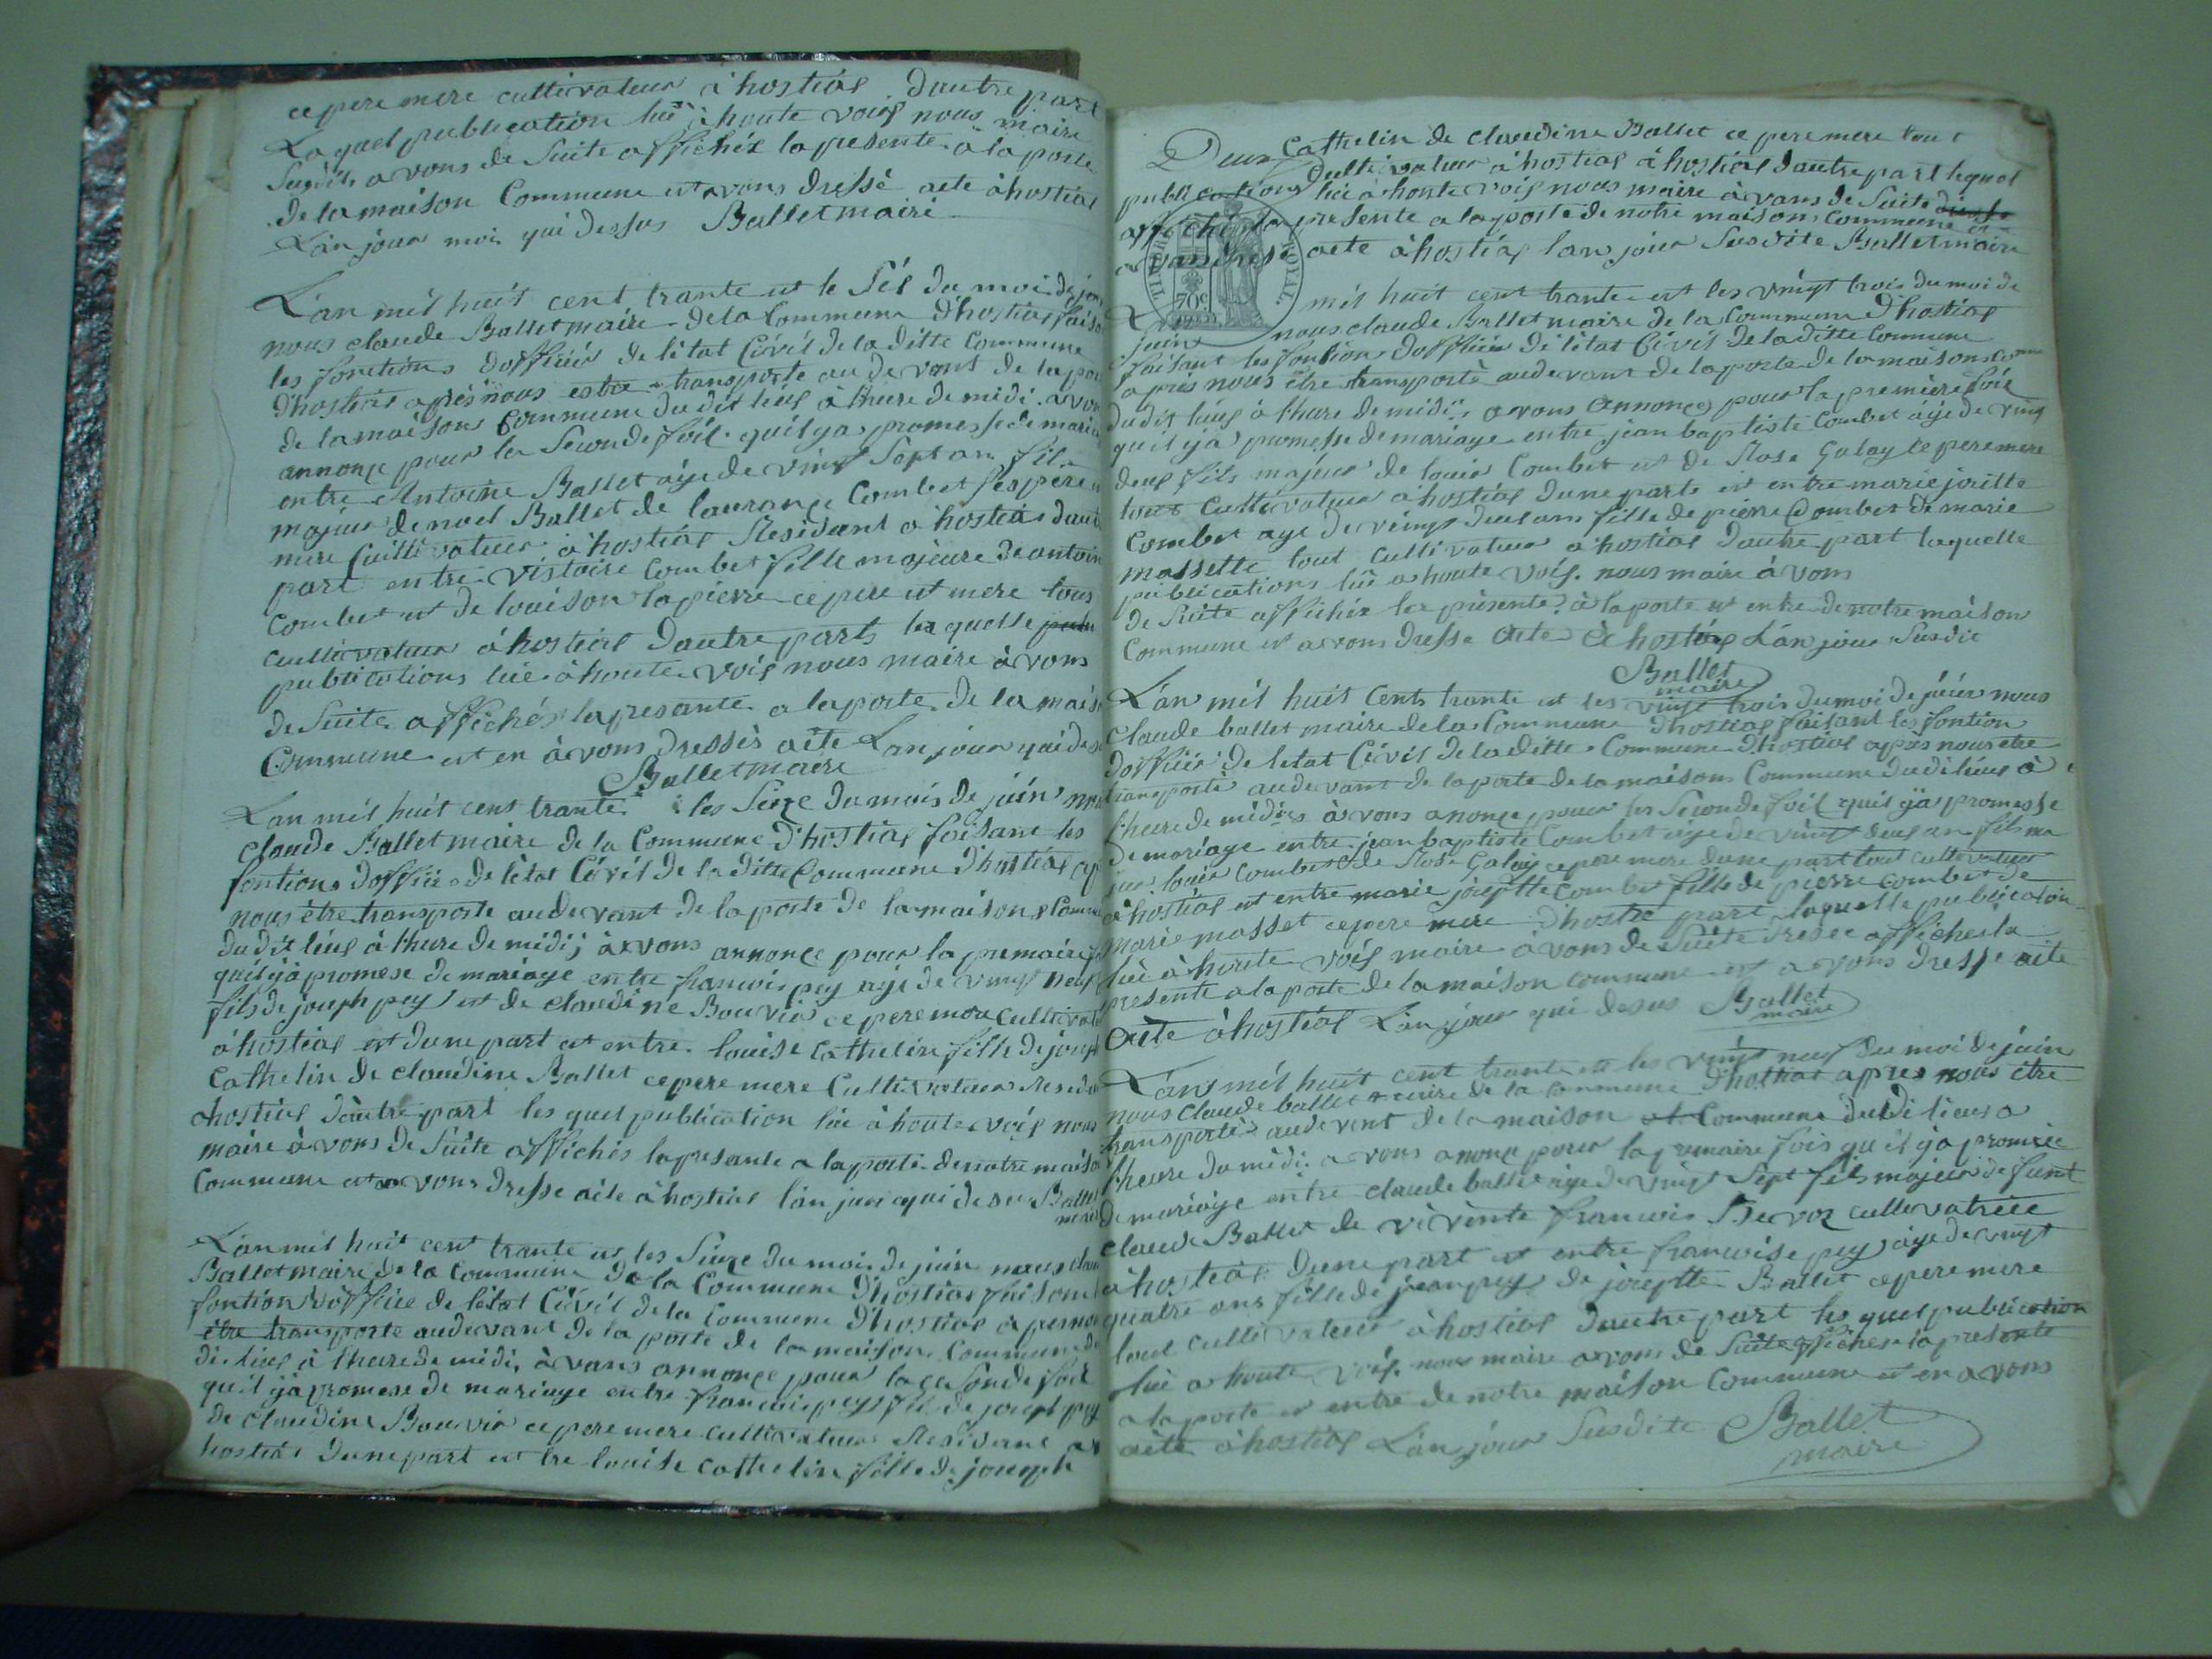 ce pere mere cultivateur à hostias. Dautre part
La quel publication lüe à houte voix nous maire
Susdit avons de Suite affichéz la presente à la porte
de la maison Commune est avons dressé acte à hostias
L'an jour mois qui dessus Ballet maire
L'an mil huit cent trante est le Sis du moi de
nous claude Ballet maire de la Commune D'hostias
les fonctions dofficier de l'état Civil de la ditte Commune
D'hostias après nous estre transporte au devant de la
de la maison Commune du dit lieux à l'heure de midi.
annonce pour la Seconde fois. quil ya promesse de
entre Antoine Ballet age de vint Sept an fils
majeur de noel Ballet de laurance Combet
mere Cuiltivateur à hostias Residant a hostias
part entre Vistoire Combet fille majeure de
Combet est de louison lapierre ce pere et mere tous
cultivateur à hostias Dautre parts la quelle
publications lüe à houte voix nous maire àvons
de Suite affichés la presante a la porte de la
Commune est en àvons dressés aite Lan jour
Ballet maire
L'an mil huit cens trante les Seize du mois de juin
claude Ballet maire de la Commune D'hostias faisant les
fontions doffiier de l'état Civil de la ditte Commune D'hostias
nous être transporte au devant de la porte de la maison
du dit lieus à l'heure de midij àvons annonce pour la premaire
quil ya promese de mariage entre francois pey age de vingt
fils de joseph pey est de claudine Bouvier ce pere mere
à hostias est dune part est entre louise Cathelin fille de
Cathelin de claudine Ballet ce pere mere Cultivateur
hostias dautre part les quel publication lüe à houte voix nous
maire àvons de Suite affichés la presante a la porte de notre
Commune est avons dresse aite à hostias l'an jour qui de
L'an mil huit cent trante est les Seize du moi de juin nous
Ballet maire de la Commune de la Commune D'hostias
fontion doffiiee de l'état Civil de la Commune D'hostias
être transporte au devant de la porte de la maison Commune
di lieus à l'heure de midi, àvans annonçe pour la
qu'il ya promese de mariage entre francois pey fils de joseph pey
de claudine Bouvier ce pere mere cultivateur Residant
hostias Dune part est tre louise Cathelin fille de joseph
Cathelin de claudine Ballet ce pere mere tout
Cultivateur à hostias à hostias dautre part le quel
publications lüe à houte voix nous maire àvans de Suite
presente a la porte de notre maison Commune
acte à hostias lan jour Susdite Ballet maire
TIMBRE ROYAL
70c
mil huit cent trante est les vingt trois du moi de
juin nous claude Ballet maire de la Commune D'hostias
faisant les fontion doffiier de l'état Civil de la ditte Commune
apres nous être transporté au devant de la porte de la maison
du dit lieus à l'heure de midij avons annonçe pour la première fois
quil ya promesse de mariage entre jean baptiste Combet age de vint
deus fils majeur de louis Combet est de Rose Galay ce pere mere
tout Cultivateur a hostias dune parte est entre marie
Combet age de veingt deus ans fille de pierre Combet de marie
massette tout Cultivateur a hostias Dautre part laquelle
publications lüe a houte voix. nous maire àvons
de Suite affichéz la présente à la porte est entre de notre maison
Commune est avons dresse acte à hostias L'an jour Susdit
Ballet
maire
L'an mil huit cents trante est les vingt trois du moi de juin nous
claude ballet maire de la Commune D'hostias faisant les fontion
doffiier de letat Civil de la ditte Commune D'hostias après nous etre
transporté au devant de la porte de la maison Commune du di lieus à
l'heure de midij àvons anonçe pour les Seconde fois quil ya promesse
de mariage entre jean baptiste Combet age de vint deus an fils ma
jeur louis Combet de Rose Galay ce pere mere dune part tout cultivateur
à hostias est entre marie josephte Combet fille de pierre combet de
marie masset ce pere mere part laquelle publication
lüe à houte voix maire àvons de Suite affiches la
presente a la porte de la maison commune est avons dresse aite
aite à hostias L'an jour qui desus Ballet
maire
L'an mil huit cent trante est les vingt neuf du moi de juin
nous claude ballet maire de la commune D'hostias apres nous être
transporté au devent de la maison Commune du di lieus a
l'heure du midi. avons anonç pour la premaire fois qu'il ya
de mariage entre claude ballet age de vingt Sept fils majeur de
claude Ballet de vivante francois cultivatrice
à hostias dune part est entre francoise pey age de vingt
quatre ans fille de jean pey de josephte Ballet ce pere mere
tout cultivateur à hostias Dautre part les quel publication
lüe a houte voix. nous maire avons de Suite affiches la presente
a la porte est entre de notre maison Commune est en avons
aite à hostias L'an jour Susdite Ballet
maire